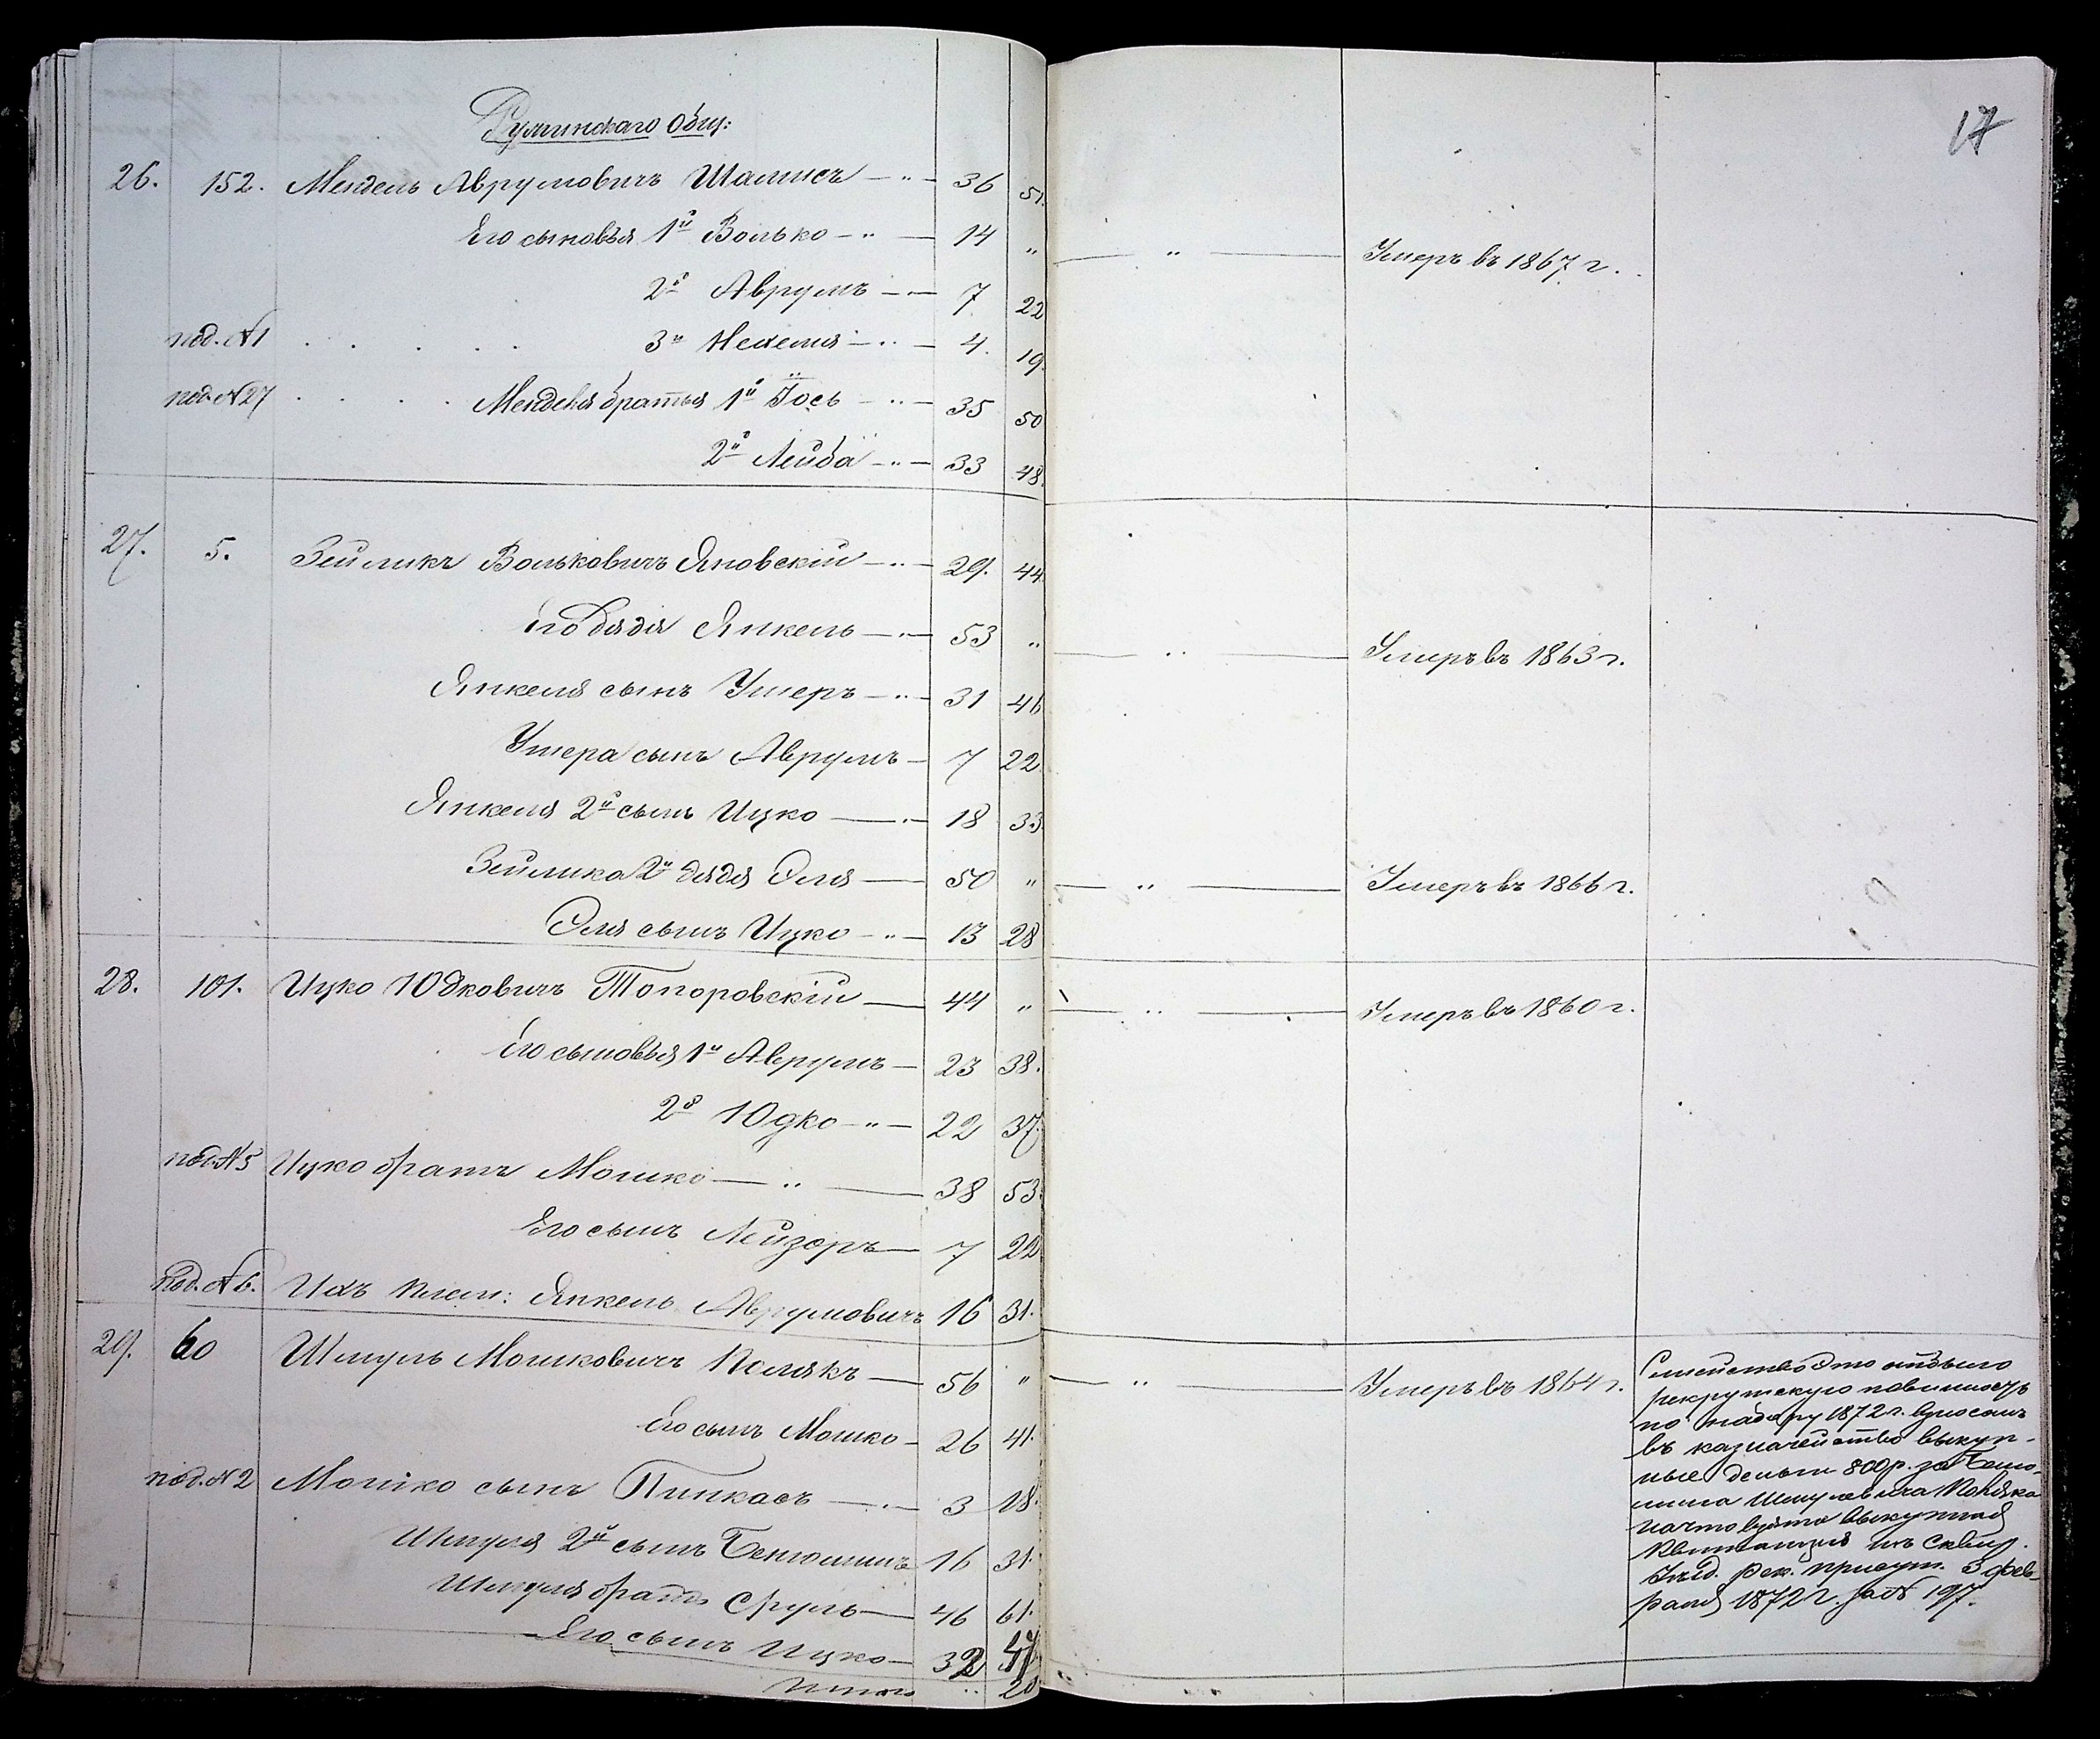 17
Ружинскаго Общ:
26. 152. Мендель Аврумовичъ Шамисъ — „ — 36 51.
Его сыновья 1й Волько — „ — 14 „ — „ — Умеръ въ 1867 г.
2й Аврумъ — „ — 7 22
под. №1 3й Нехемія — „ — 4. 19.
под. №27 Менделя братья 1й Іось — „ — 35 50
2й Лейба — „ — 33 48.
27. 5. Зейликъ Вольковичъ Яновскій — „ — 29. 44.
Его дядя Янкель — „ — 53 „ — „ — Умеръ въ 1863 г.
Янкеля сынъ Ушеръ — „ — 31 46
Ушера сынъ Аврумъ — 7 22.
Янкеля 2й сынъ Ицко — „ — 18 33.
Зейлика 2й дядя Эля — 50 „ — „ — Умеръ въ 1866 г.
Эля сынъ Ицко — „ — 13 28
28. 101. Ицко Юдковичъ Топоровскій — 44 „ — „ — Умеръ въ 1860 г.
Его сыновья 1й Аврумъ — 23 38.
2й Юдко — „ — 22 37.
под. №5 Ицко братъ Мошко — „ — 38 53.
Его сынъ Лейзоръ — 7 22
под. №6. Ихъ плем: Янкель Аврумовичъ 16 31.
29. 60 Шмуль Мошковичъ Полякъ — 56 „ — „ — Умеръ въ 1864 г.
Его сынъ Мошко — 26 41.
под. №2 Мошко сынъ Пинкасъ — „ — 3 18.
Шмуля 2й сынъ Беніоминъ 16 31.
Шмуля братъ Сруль — 46 61.
Его сынъ Ицко — 32 47
Итого „ 20
Семейство это отбыло
рекрутскую повинность
по набору 1872 г. взносомъ
въ казначейство выкуп-
ные деньги 800 р. за Бенio-
мина Шмулевича Поляка
на что взята выкупная
квитанція изъ Сквир.
Уѣзд. рек. присут. 3 фев-
раля 1872 г. за № 197.